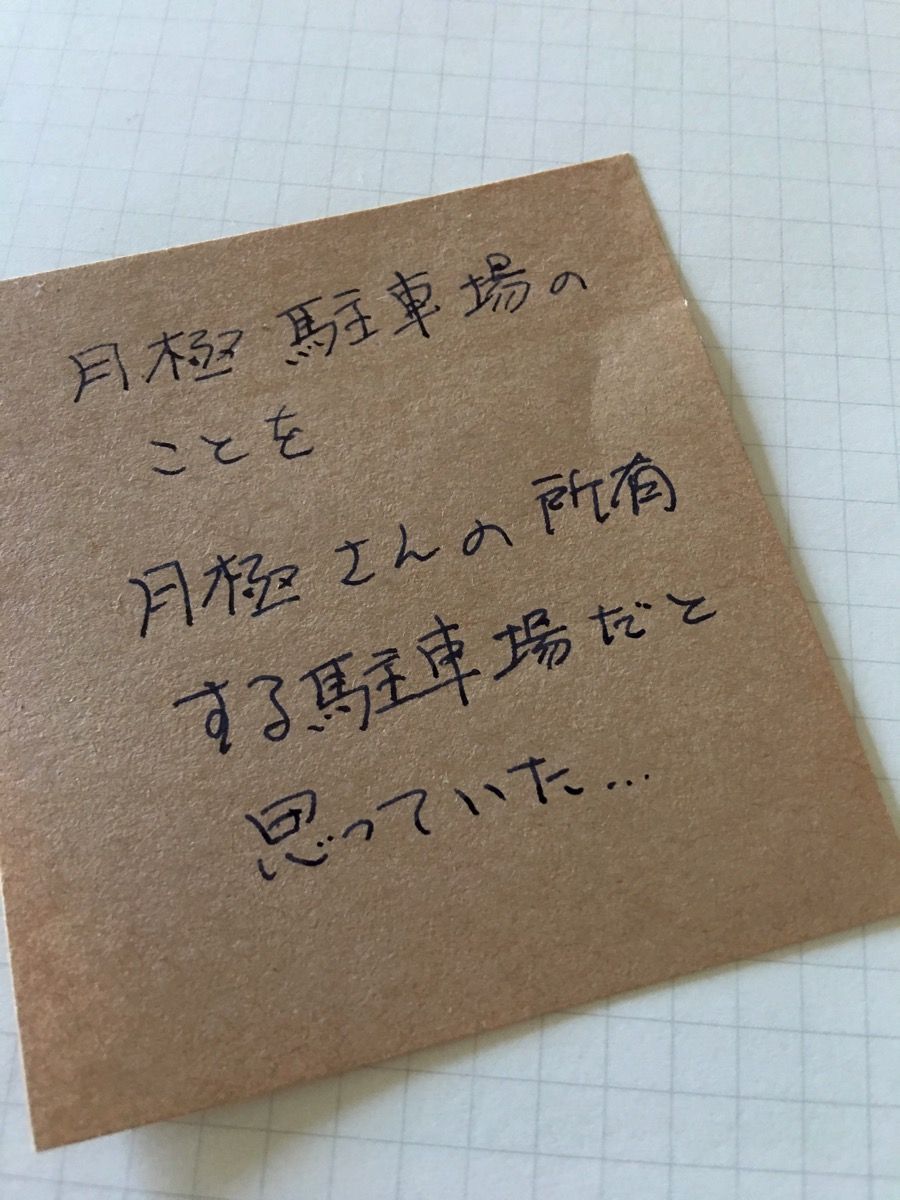 月極駐車場の
ことを
月極さんの所有
する駐車場だと
思っていた…